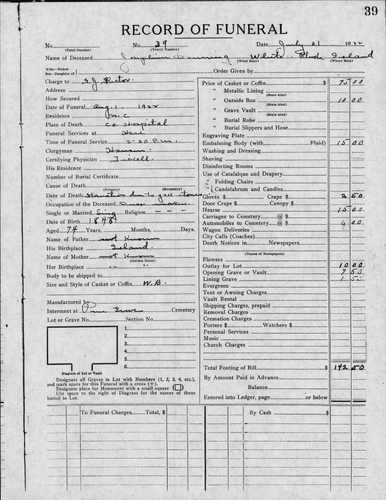 39
RECORD OF FUNERAL
No. (Total Number) No. 39 (Yearly Number) Date July 31 1922
Name of Deceased Josephine White (What Race) Rhode Island (Where Born)
Wife—Widow
Son—Daughter of Order Given by
Charge to
Address
How Secured
Date of Funeral Aug. 1 1922
Residence
Place of Death Co Hospital
Funeral Services at
Time of Funeral Service 2:30 P.M.
Clergyman
Certifying Physician
His Residence
Number of Burial Certificate
Cause of Death (Primary) (Secondary)
Date of Death
Occupation of the Deceased
Single or Married Sing Religion
Date of Birth 1848
Aged 74 Years, Months, Days.
Name of Father not Known
His Birthplace
Name of Mother not Known (Maiden Name)
Her Birthplace
Body to be shipped to
Size and Style of Casket or Coffin W.B.
Manufactured by
Interment at Cemetery
Lot or Grave No. Section No.
1.
2.
3.
4.
5.
6.
Diagram of Lot or Vault
Designate all Graves in Lot with Numbers (1, 2, 3, 4, etc.),
and mark space for this Funeral with a cross (+).
Designate place for Monument with a small square
Use space to the right of Diagram for the names of those
buried in Lot.
Price of Casket or Coffin $ 75 00
" Metallic Lining (State kind)
" Outside Box 10 00
" Grave Vault (State kind)
" Burial Robe (State kind)
" Burial Slippers and Hose
Engraving Plate
Embalming Body (with Fluid) 15 00
Washing and Dressing
Shaving
Disinfecting Rooms
Use of Catafalque and Drapery
" Folding Chairs
" Candelabrum and Candles
Gloves $ Crape $ 2 50
Door Crape $ Canopy $
Hearse 15 00
Carriages to Cemetery @ $
Automobiles to Cemetery @ $
Wagon Deliveries
City Calls (Coaches)
Death Notices in Newspapers.
(Names of Newspapers)
Flowers
Outlay for Lot 10 00
Opening Grave or Vault 7 50
Lining Grave
Evergreen
Tent or Awning Charges
Vault Rental
Shipping Charges, prepaid
Removal Charges
Cremation Charges
Porters $ Watchers $
Personal Services
Music
Church Charges
Total Footing of Bill $ 142 50
By Amount Paid in Advance
Balance
Entered into Ledger, page or below
To Funeral Charges Total, $ By Cash $